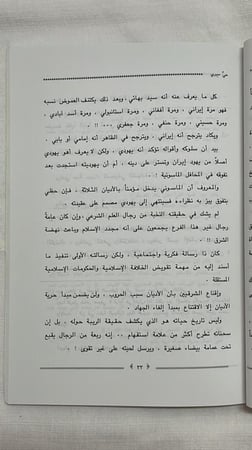 كل ما يعرف عنه أنه سيد بهائي، وبعد ذلك يكتنف الغموض نسبه
فهو مرة إيراني، ومرة أفغاني، ومرة استانبولي، ومرة أسد أبادي،
ومرة حسيني، ومرة حنفي، ومرة جعفري ... !! .
ويكاد يترجح أنه إيراني، ويترجح في الظاهر أنه إمامي أو بابي .
بيد أن سلوكه وأقواله تؤكد أنه يهودي، ولكن لا يعرف أهو يهودي
أصلاً من يهود إيران وتستر على دينه، أم أن يهوديته استجدت بعد
تفوقه في المحافل الماسونية .
والمعروف أن الماسوني يدخل مؤمناً بالأديان الثلاثة، فإن حظي
بتفوق بيز به نظراءه فسينتهي إلى يهودي مصمم على عقيدته .
لم يشك في حقيقته النخبة من رجال العلم الشرعي، وإن كان عامة
رجال غير هذا الفرع يجمعون على أنه مجدد الإسلام وباعث نهضة
الشرق !! .
كان ذا رسالة فكرية واجتماعية، ولكن رسالته الأولى تنفيذ ما
أسند إليه من مهمة تقويض الخلافة الإسلامية والحكومات الإسلامية
المستقلة .
وإقناع الشرقيين بأن الأديان سبب الحروب، ولن يضمن مبدأ حرية
الأديان إلا الاقتناع بمبدأ إلغاء الجهاد .
وليس تاريخ حياته هو الذي يكشف حقيقة الريبة حوله، بل إن
سحناته تطرح أكثر من علامة استفهام ... إنه ربعة من الرجال يقبع
تحت عمامة بيضاء صغيرة، ويرسل لحيته على غير تقوى !! .
٢٢